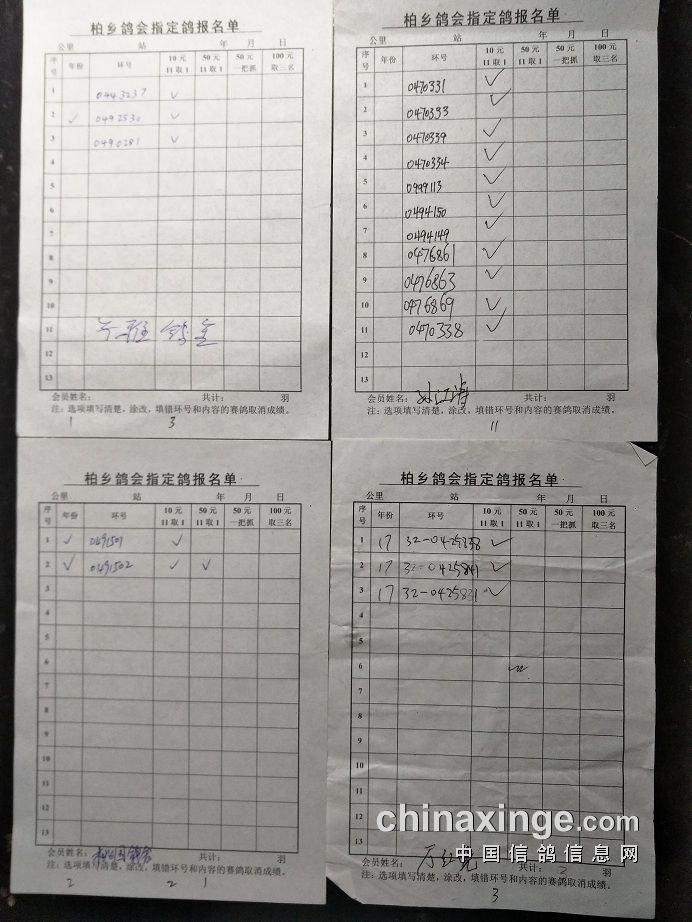 柏乡鸽会指定鸽报名单
公里 站 年 月 日
序号 年份 环号 10元 11取1 50元 11取1 50元 一把抓 100元 取三名
1 0443237 ✓
2 ✓ 0492530 ✓
3 0490281 ✓
4
5
6
7
8
9
10
11
12
13
会员姓名: 共计: 羽
注:选项填写清楚,涂改,填错环号和内容的赛鸽取消成绩。
1 3
柏乡鸽会指定鸽报名单
公里 站 年 月 日
序号 年份 环号 10元 11取1 50元 11取1 50元 一把抓 100元 取三名
1 0470331 ✓
2 0470393 ✓
3 0470339 ✓
4 0470334 ✓
5 0999113 ✓
6 0494150 ✓
7 0494149 ✓
8 0476861 ✓
9 0476863 ✓
10 0476869 ✓
11 0470338 ✓
12
13
会员姓名: 孙江涛 共计: 羽
注:选项填写清楚,涂改,填错环号和内容的赛鸽取消成绩。
11
柏乡鸽会指定鸽报名单
公里 站 年 月 日
序号 年份 环号 10元 11取1 50元 11取1 50元 一把抓 100元 取三名
1 ✓ 0491501 ✓
2 ✓ 0491502 ✓ ✓
3
4
5
6
7
8
9
10
11
12
13
会员姓名: 共计: 羽
注:选项填写清楚,涂改,填错环号和内容的赛鸽取消成绩。
2 2 1
柏乡鸽会指定鸽报名单
公里 站 年 月 日
序号 年份 环号 10元 11取1 50元 11取1 50元 一把抓 100元 取三名
1 17 32-0425838 ✓
2 17 32-0425841 ✓
3 17 32-0425831 ✓
4
5
6
7
8
9
10
11
12
13
会员姓名: 共计: 羽
注:选项填写清楚,涂改,填错环号和内容的赛鸽取消成绩。
3
chinaxinge.com
中国信鸽信息网